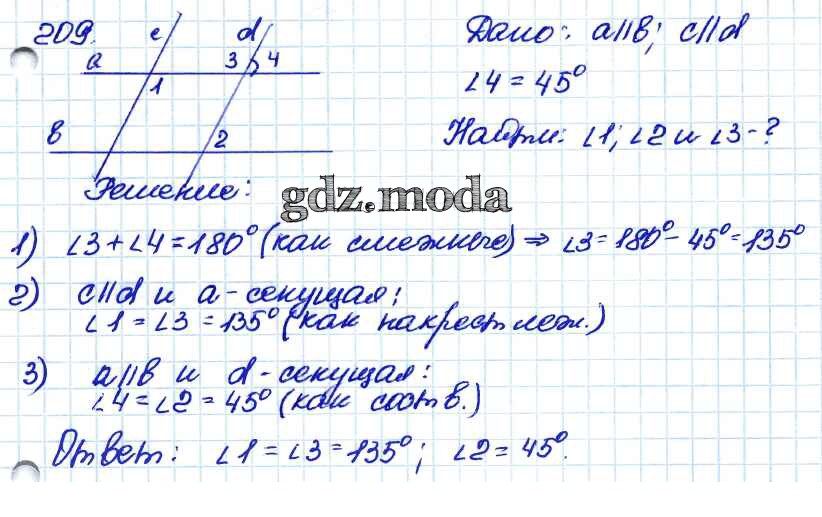 209.
c d
a 3 4
1
b 2
Дано: a∥b; c∥d
∠4 = 45°
Найти: ∠1; ∠2 и ∠3 - ?
Решение:
gdz.moda
1) ∠3 + ∠4 = 180° (как смежные) ⇒ ∠3 = 180° - 45° = 135°
2) c∥d и a - секущая:
∠1 = ∠3 = 135° (как накрест леж.)
3) a∥b и d - секущая:
∠4 = ∠2 = 45° (как соотв.)
Ответ: ∠1 = ∠3 = 135°; ∠2 = 45°.